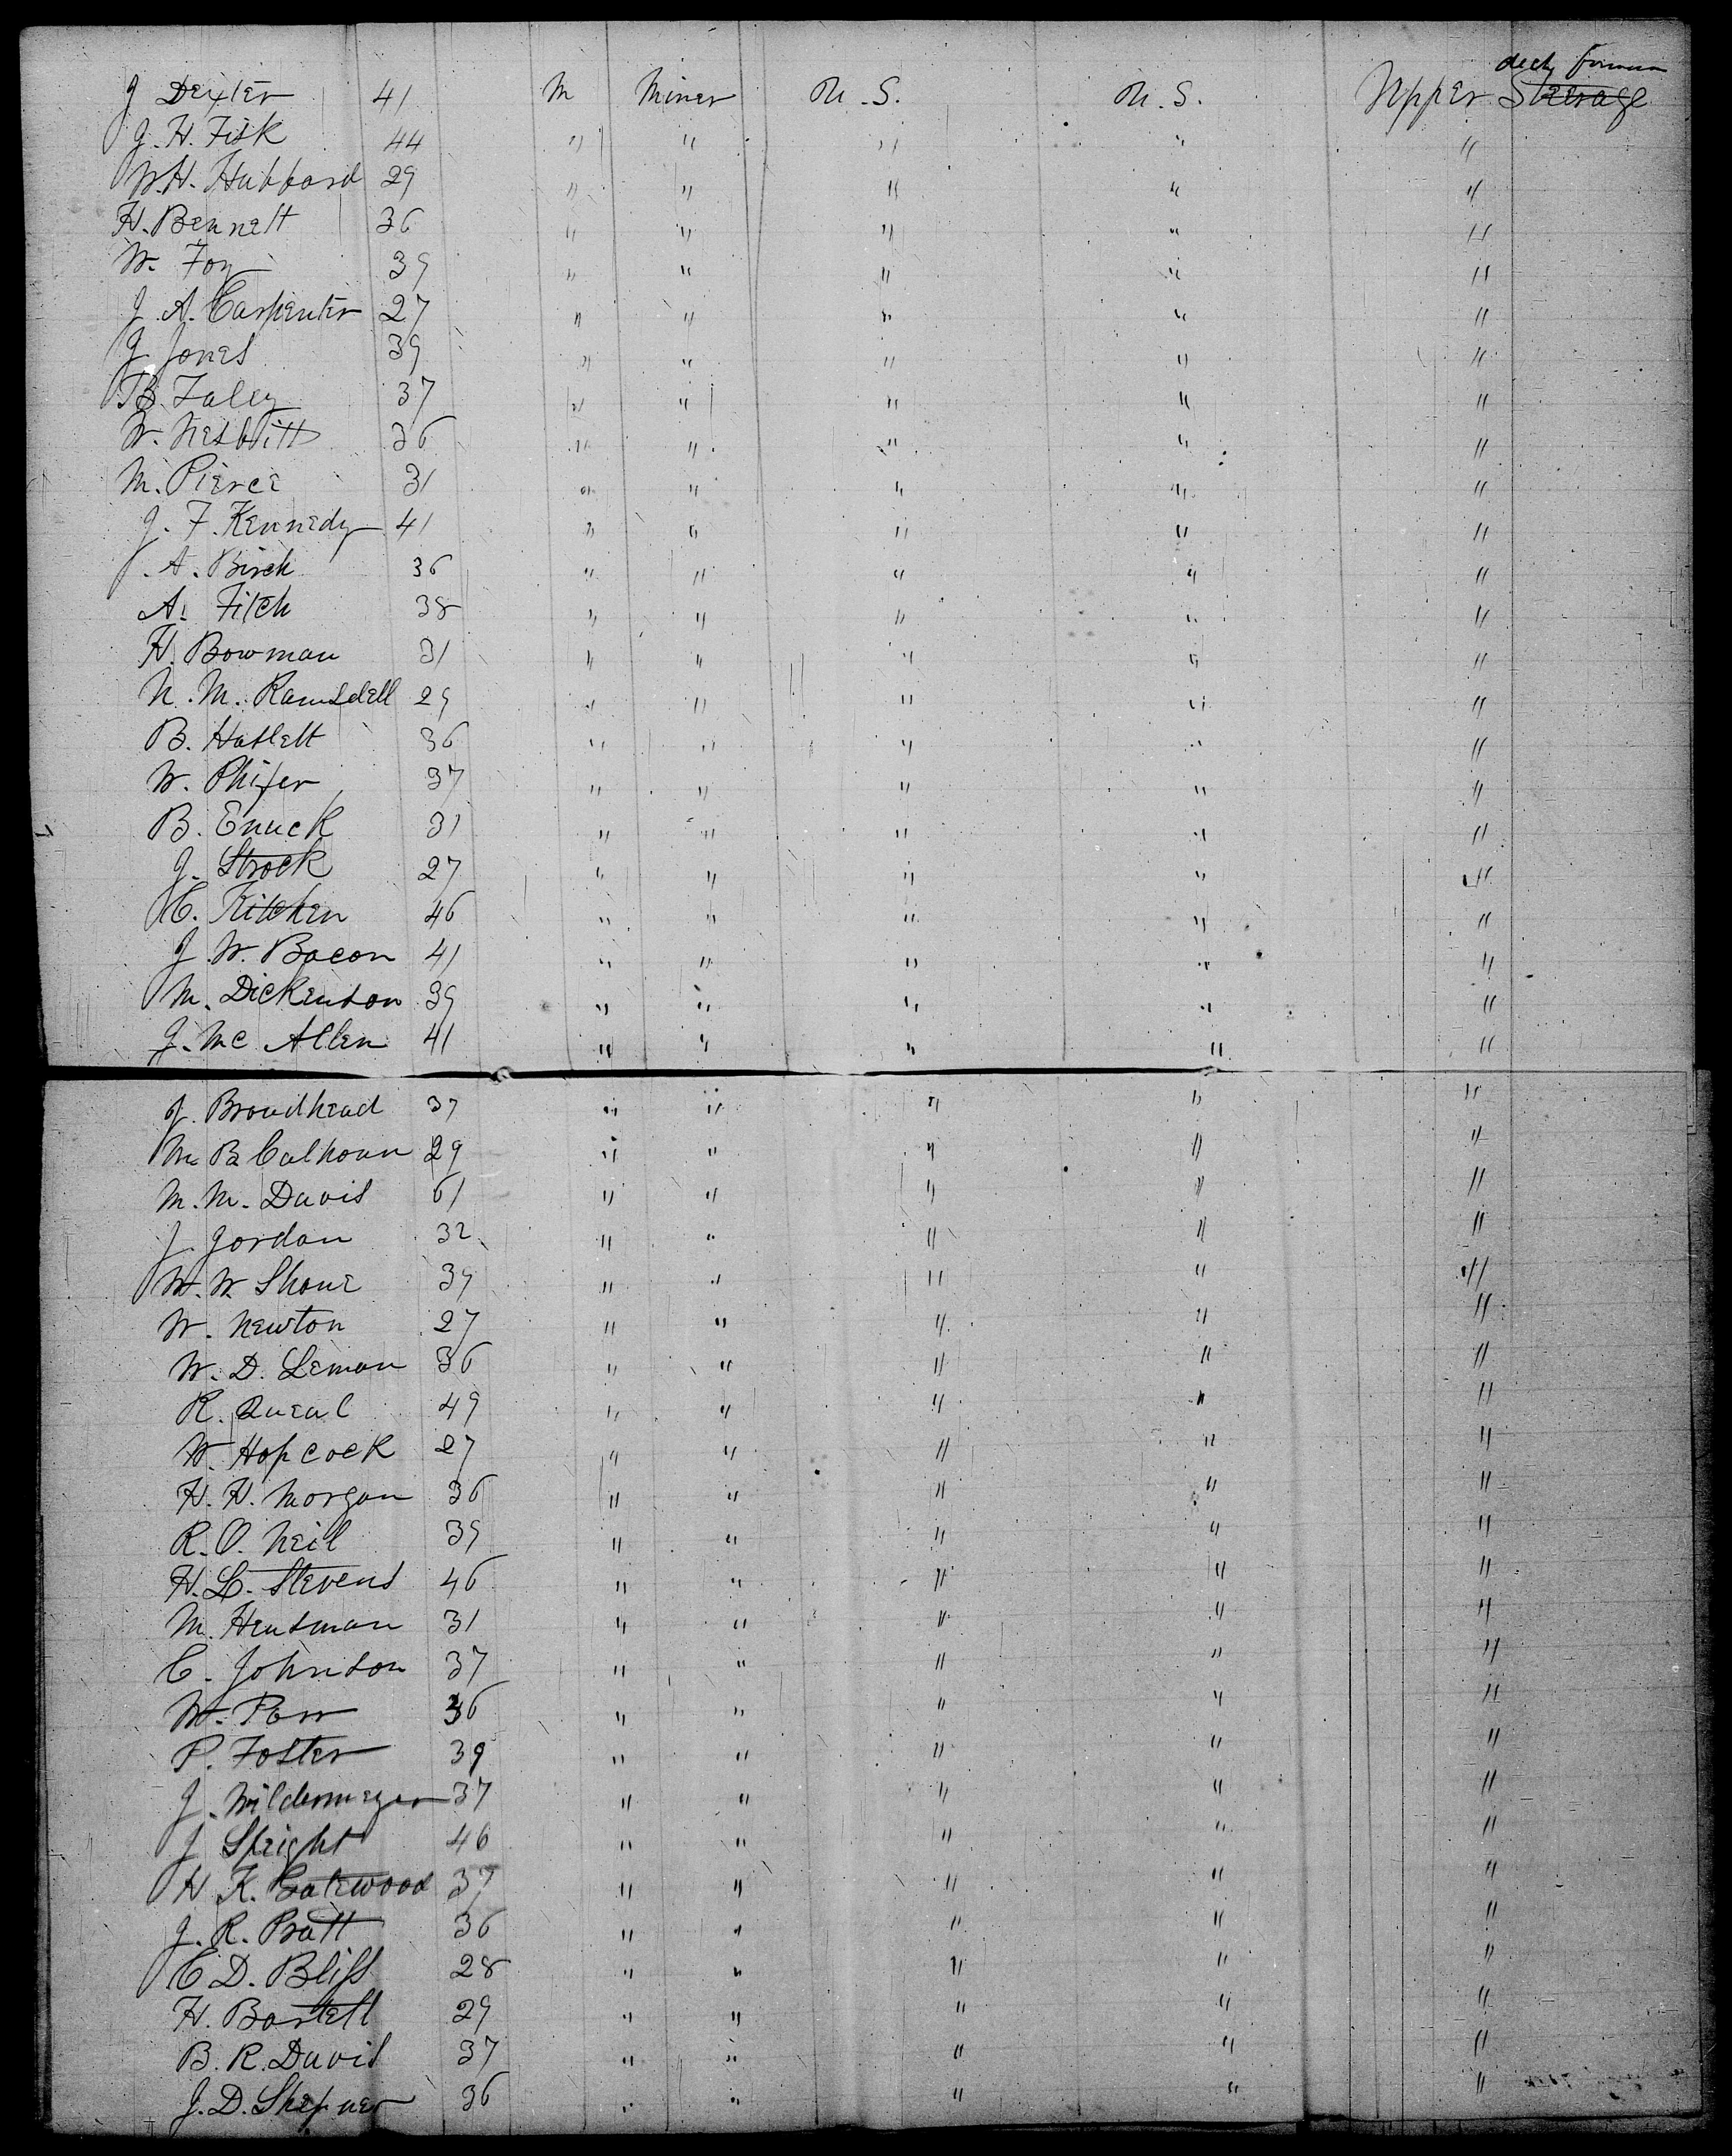 deck forward
J Dexter 41 M Miner U.S. U.S. Upper Steerage
J. H. Fisk 44 " " " " "
W. H. Hubbard 29 " " " " "
H. Bennett 36 " " " " "
W. Foy 39 " " " " "
J. A. Carpenter 27 " " " " "
J Jones 39 " " " " "
B. Faley 37 " " " " "
W. Nesbitt 36 " " " " "
M. Pierce 31 " " " " "
J. F. Kennedy 41 " " " " "
A. Birch 36 " " " " "
A. Fitch 38 " " " " "
H. Bowman 31 " " " " "
N. M. Ramsdell 29 " " " " "
B. Haslett 36 " " " " "
W. Phifer 37 " " " " "
B. Enuck 31 " " " " "
J. Strock 27 " " " " "
C. Kitchen 46 " " " " "
J. W. Bacon 41 " " " " "
M. Dickenson 39 " " " " "
J. Mc Allen 41 " " " " "
J. Broadhead 37 " " " " "
M. B. Calhoun 29 " " " " "
M. M. Davis 61 " " " " "
J. Jordan 32 " " " " "
W. W. Shone 39 " " " " "
W. Newton 27 " " " " "
W. D. Leman 36 " " " " "
R. Queal 49 " " " " "
W. Hopcock 27 " " " " "
H. H. Morgan 36 " " " " "
R. O. Neil 39 " " " " "
H. L. Stevens 46 " " " " "
M. Hensman 31 " " " " "
C. Johnson 37 " " " " "
W. 36 " " " " "
P. Foster 39 " " " " "
J. Wildermeyer 37 " " " " "
J Speight 46 " " " " "
H K. Gatewood 37 " " " " "
J. R. Pratt 36 " " " " "
C D. Bliss 28 " " " " "
H. Bartell 29 " " " " "
B. R. Davis 37 " " " " "
J. D. Shepner 36 " " " " "